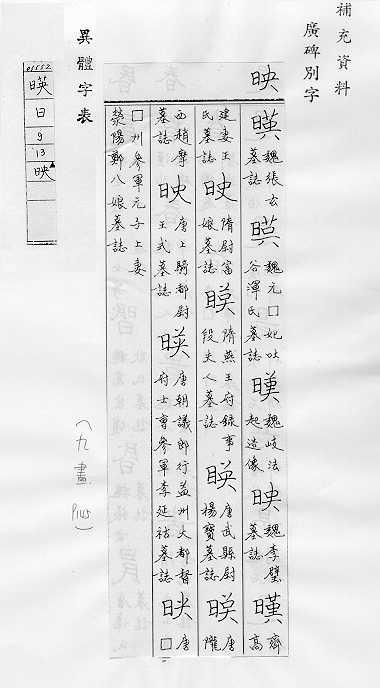 補充資料
廣碑別字
異體字表
01552
暎
日
9
13
映
映
魏張玄墓誌 魏元□妃吐谷渾氏墓誌 魏岐法起造像 映 魏李璧墓誌 齊高
建妻王氏墓誌 映 隋尉富娘墓誌 隋燕王府錄事段夫人墓誌 暎 唐武縣尉楊寶墓誌 暎 唐隴
西趙摩墓誌 映 唐上騎都尉王式墓誌 暎 唐朝議郎行益州大都督府士曹參軍李延祜墓誌 唐□
□州參軍元子上妻滎陽鄭八娘墓誌
(九畫 P105)